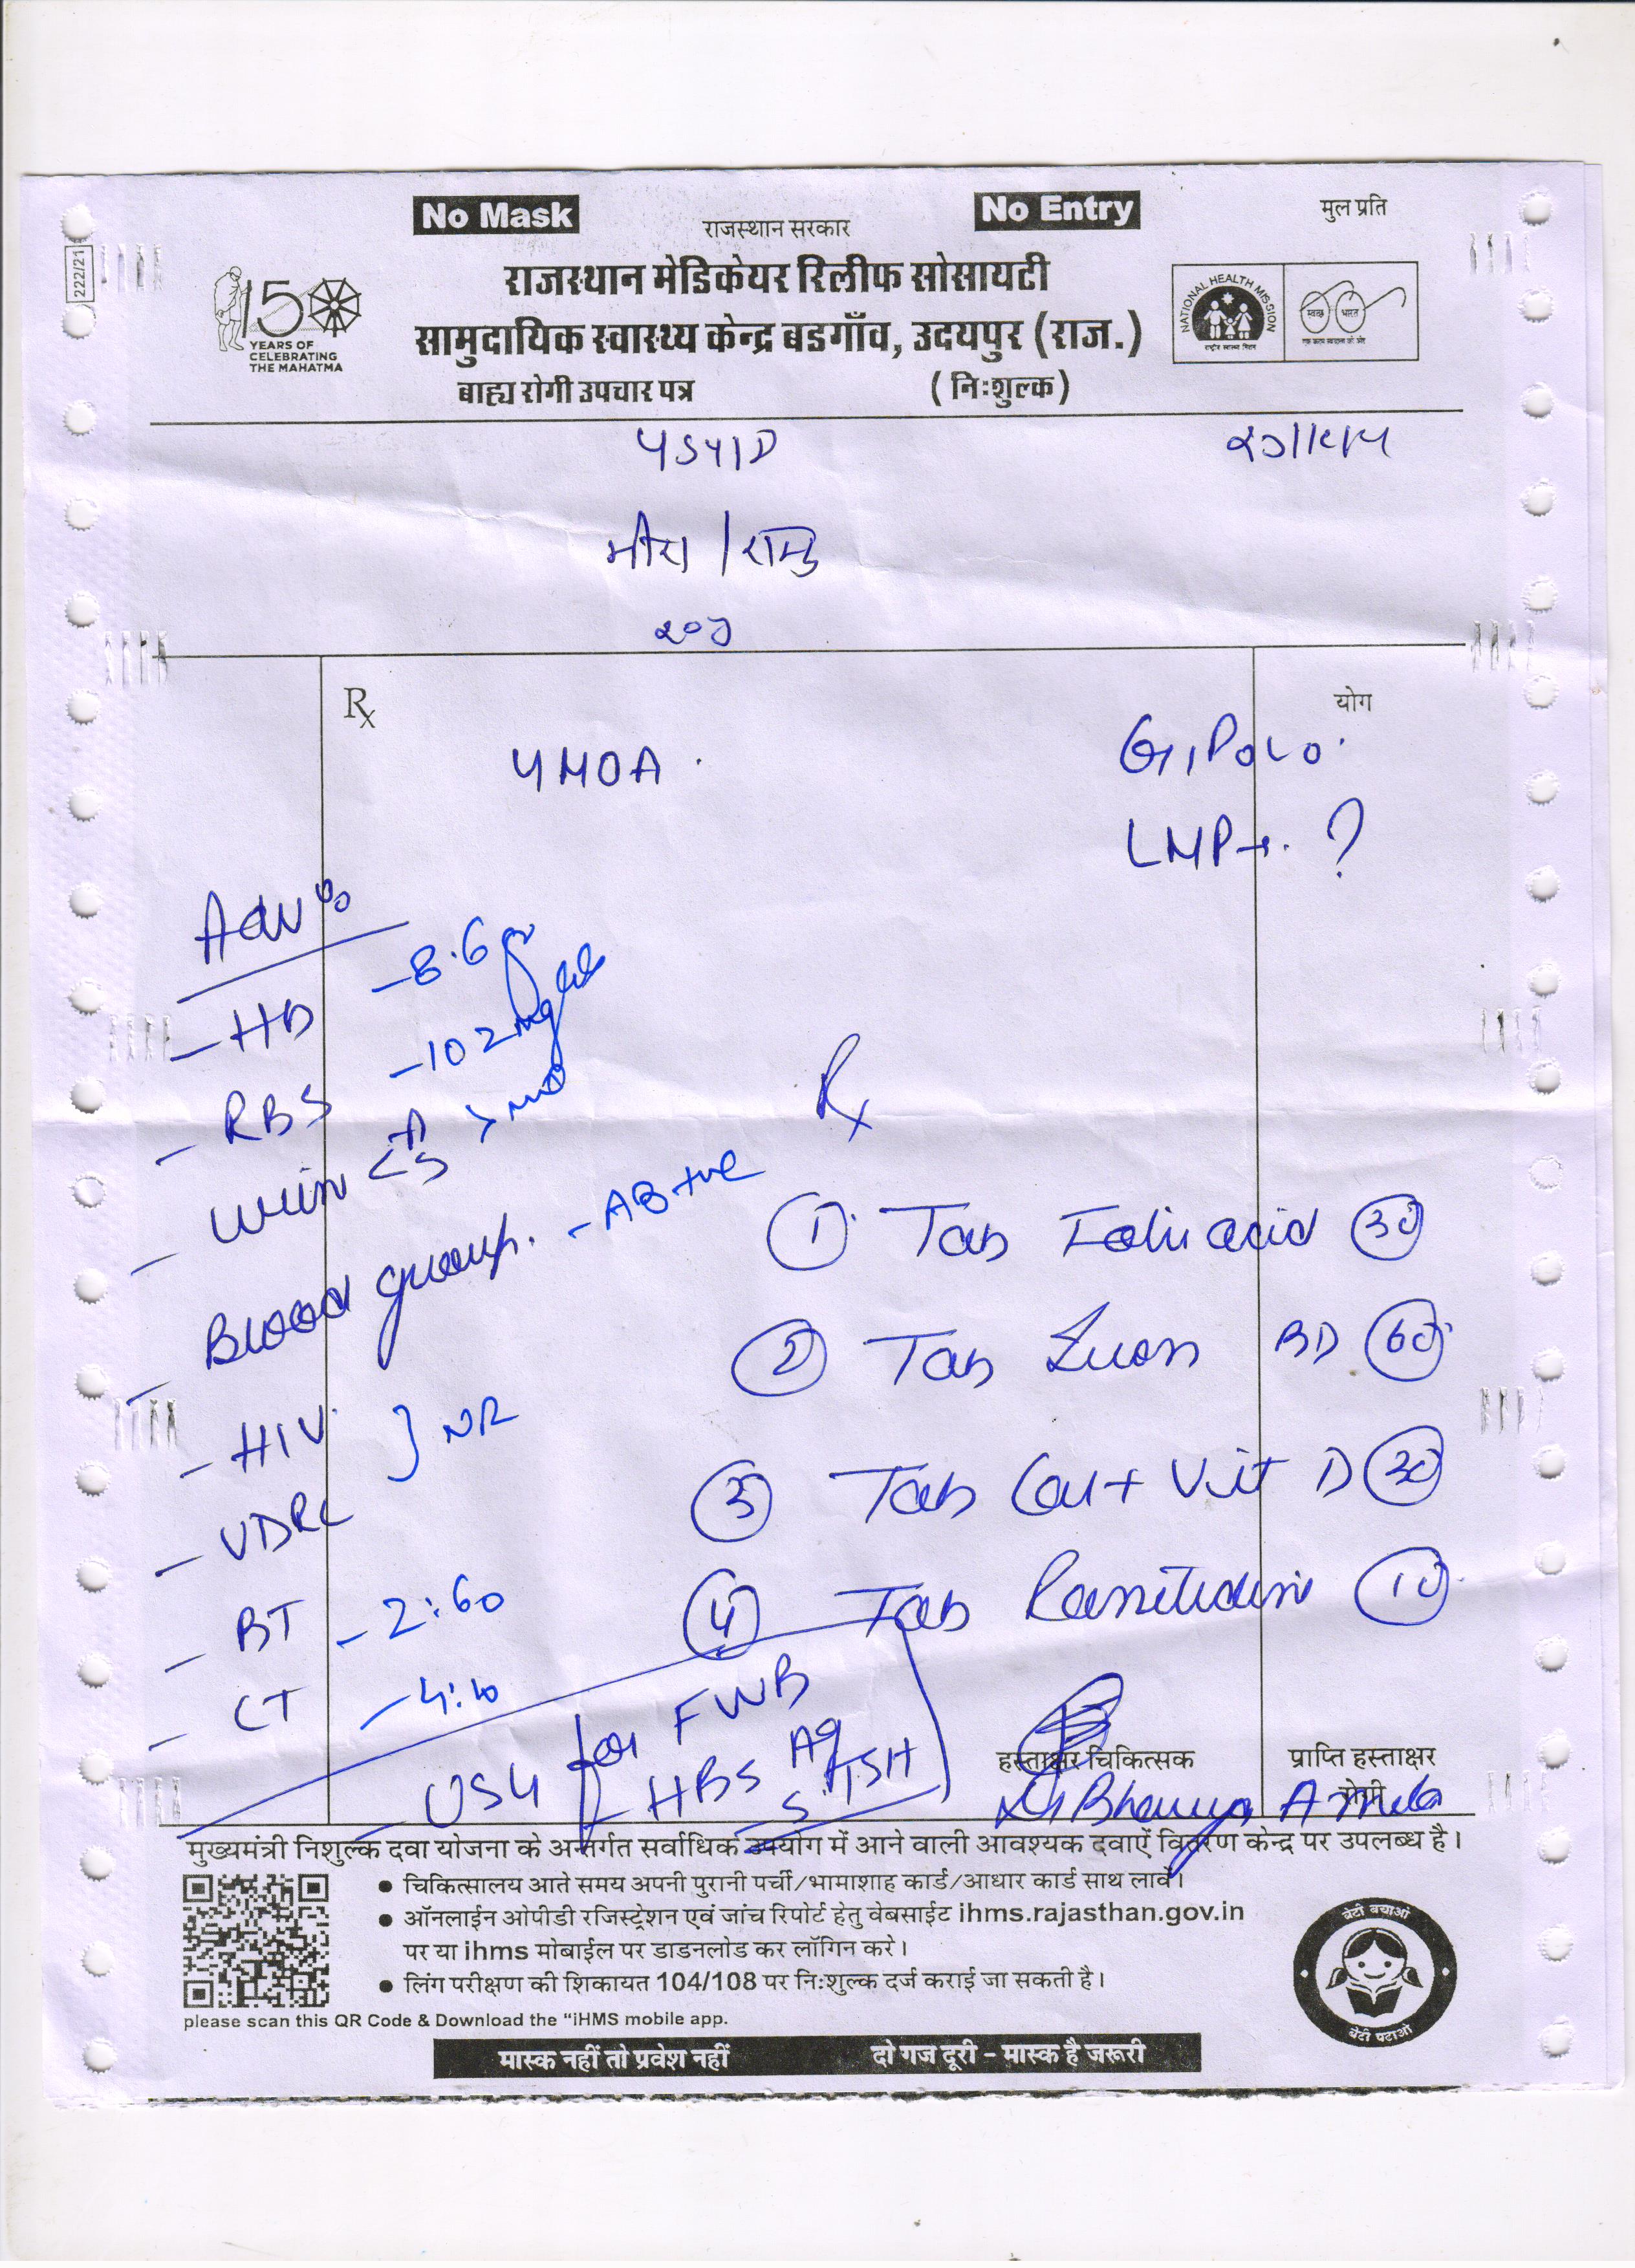 No Mask
No Entry
मुल प्रति
राजस्थान सरकार
222/21
राजस्थान मेडिकेयर रिलीफ सोसायटी
150
YEARS OF
CELEBRATING
THE MAHATMA
NATIONAL HEALTH MISSION
राष्ट्रीय स्वास्थ्य मिशन
स्वच्छ भारत
एक कदम स्वच्छता की ओर
सामुदायिक स्वास्थ्य केन्द्र बडगाँव, उदयपुर (राज.)
बाह्य रोगी उपचार पत्र (निःशुल्क)
/रामु
Rx
योग
4MOA.
G1P0L0.
LMP→. ?
Adv:
- HB - 8.6 g
- RBS - 102 mg
- Blood group. - AB+ve
- HIV } NR
- VDRL
- BT - 2:60
- CT
- USG for FWB
- HBS Ag
S. TSH
Rx
① Tab Folic acid (30)
② Tab Iron BD (60)
③ Tab Cal + Vit D (30)
④ Tab Ranitidin (10)
हस्ताक्षर चिकित्सक
प्राप्ति हस्ताक्षर
रोगी
मुख्यमंत्री निशुल्क दवा योजना के अन्तर्गत सर्वाधिक उपयोग में आने वाली आवश्यक दवाऐं वितरण केन्द्र पर उपलब्ध है।
● चिकित्सालय आते समय अपनी पुरानी पर्ची/भामाशाह कार्ड/आधार कार्ड साथ लावें।
● ऑनलाईन ओपीडी रजिस्ट्रेशन एवं जांच रिपोर्ट हेतु वेबसाईट ihms.rajasthan.gov.in
पर या ihms मोबाईल पर डाडनलोड कर लॉगिन करे।
● लिंग परीक्षण की शिकायत 104/108 पर निःशुल्क दर्ज कराई जा सकती है।
please scan this QR Code & Download the "iHMS mobile app.
बेटी बचाओ
बेटी पढाओ
मास्क नहीं तो प्रवेश नहीं
दो गज दूरी - मास्क है जरूरी